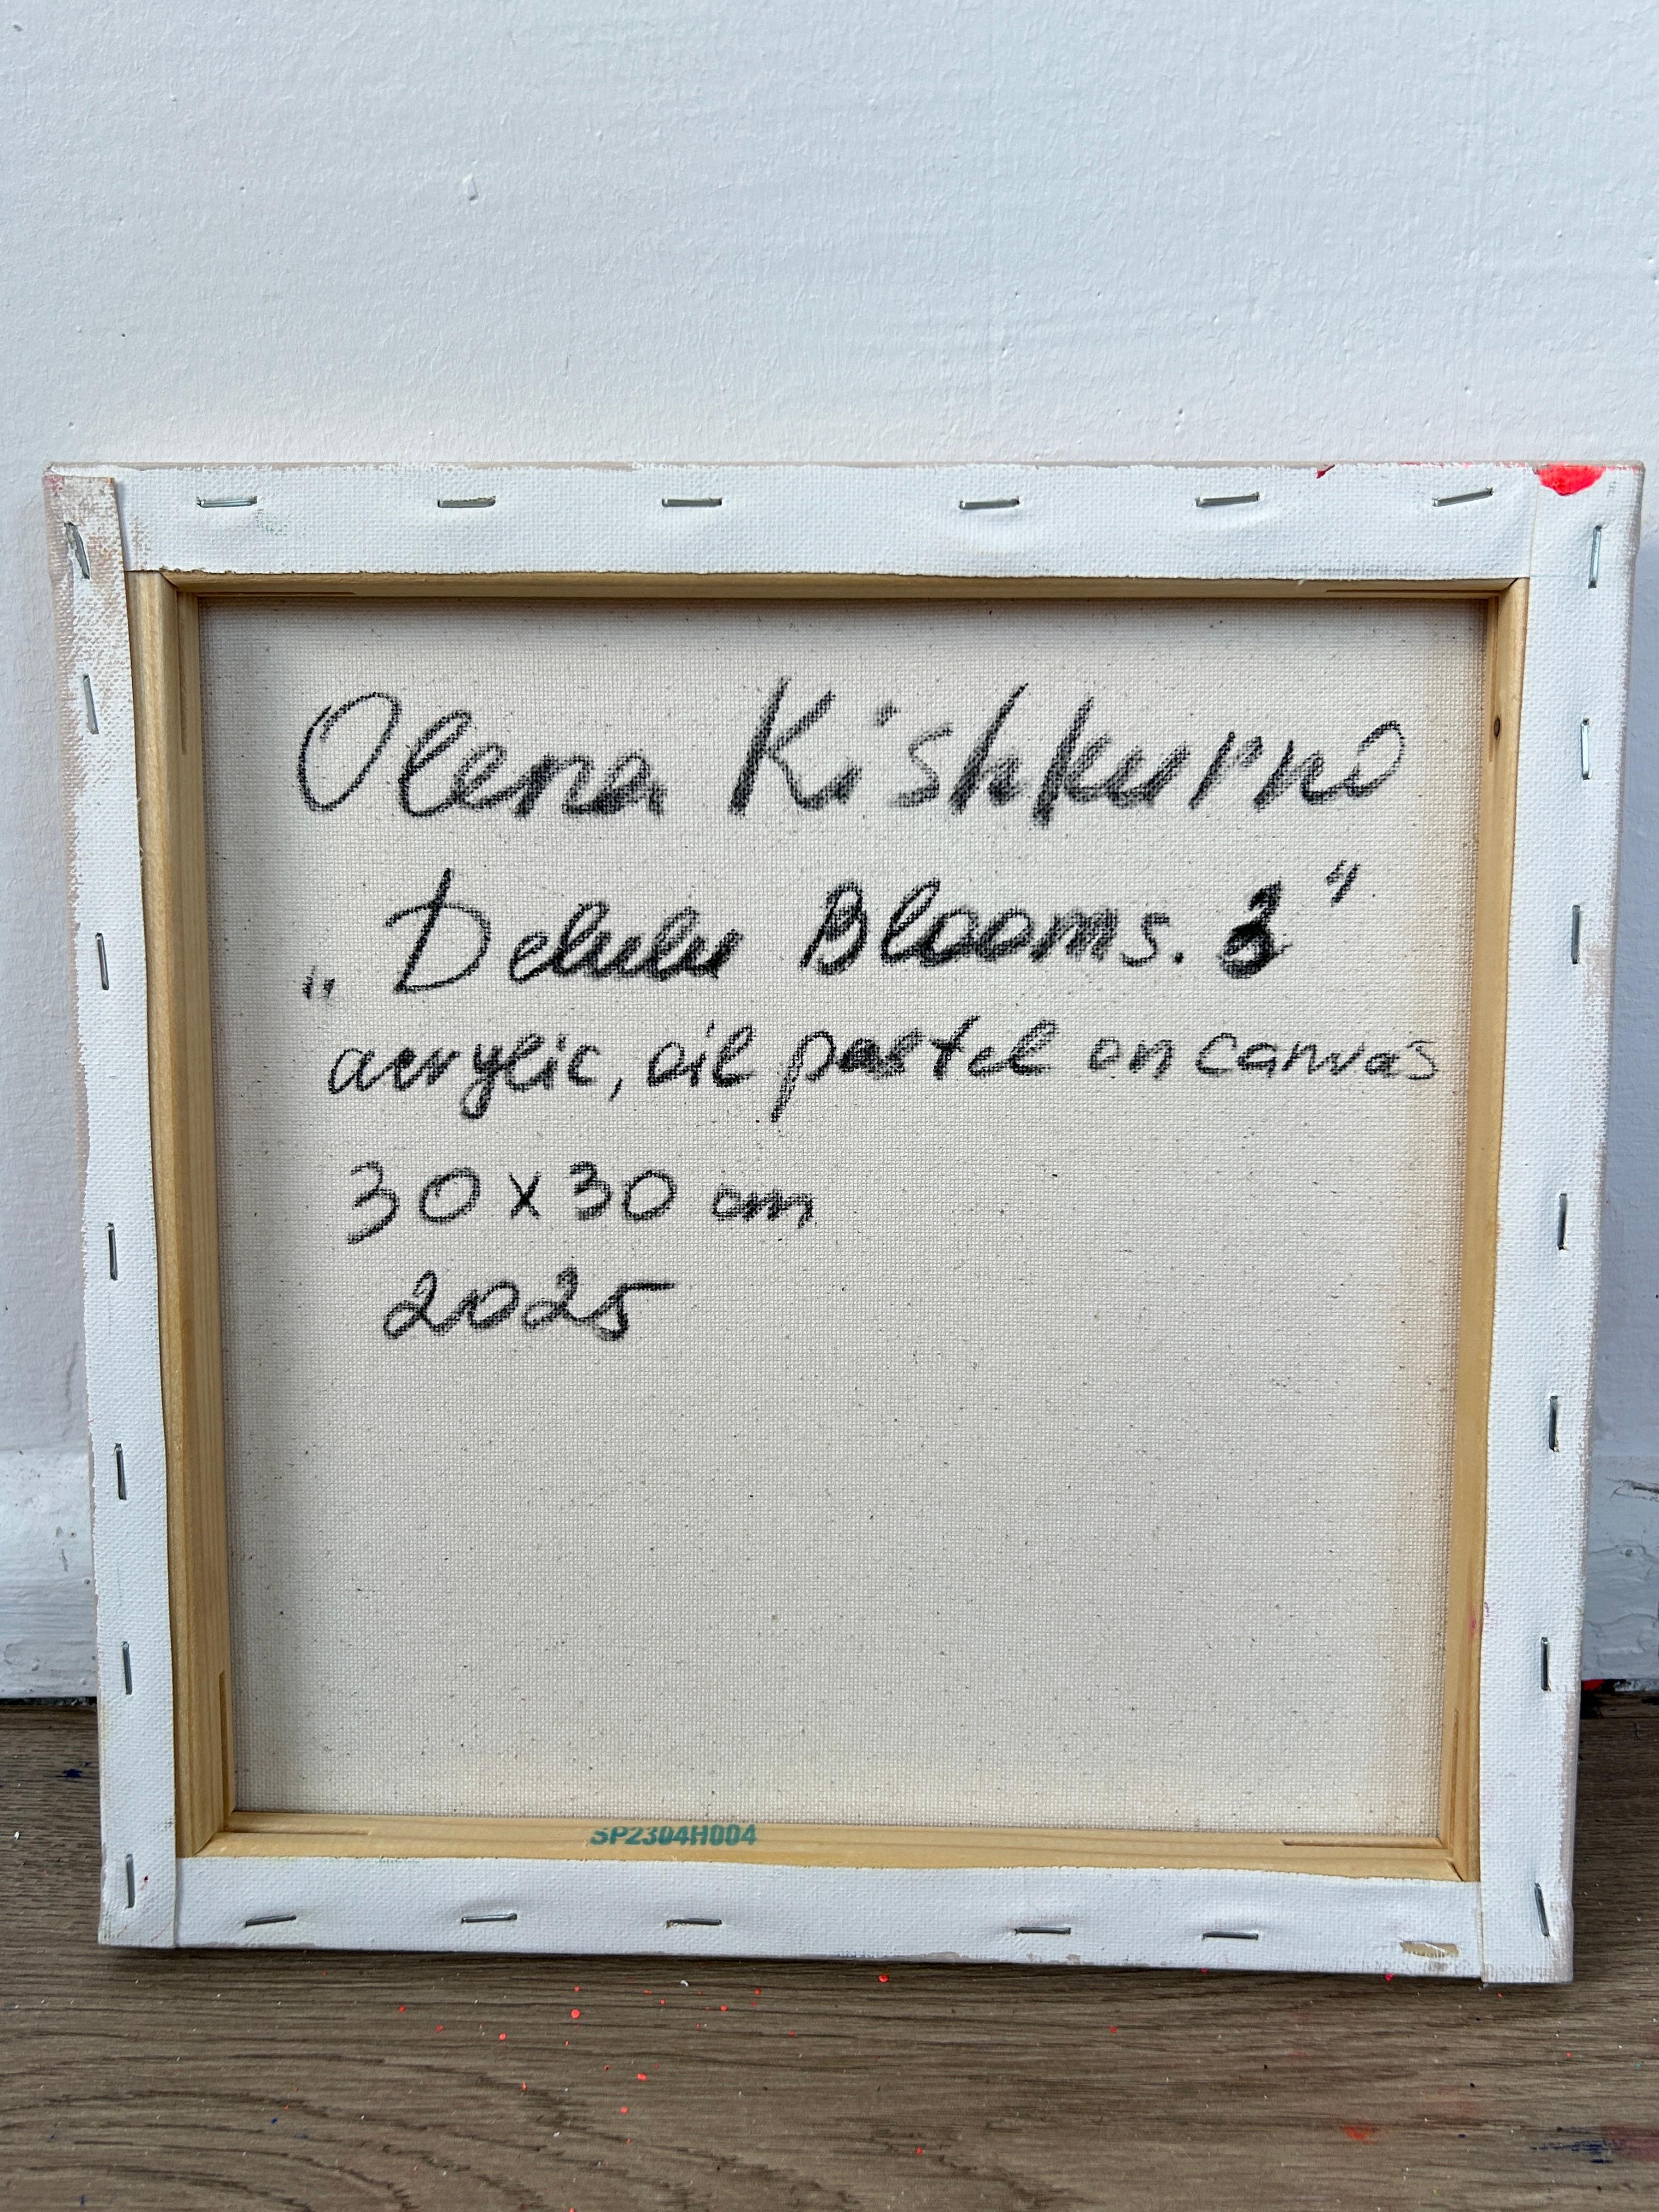 Olena Kishkurno
„Delulu Blooms. 3"
acrylic, oil pastel on canvas
30x30 cm
2025
SP2304H004